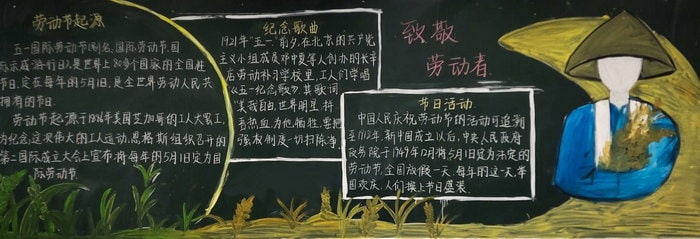 劳动节起源
五一国际劳动节别名、国际劳动节、国
际示威游行日,是世界上80多个国家的全国性
节日。定在每年的5月1日,是全世界劳动人民共同
拥有的节日。
劳动节起源于1886年美国芝加哥的工人大罢工,
为纪念这次伟大的工人运动,恩格斯组织召开的
第二国际成立大会上宣布,将每年的5月1日定为国
际劳动节
纪念歌曲
1921年"五一"前夕,在北京的共产党
主义小组成员邓中夏等人创办的长辛
店劳动补习学校里,工人们学唱
《五一纪念歌》。其歌词
"美哉自由,世界明星,拼
吾热血,为他牺牲,要把
强权制度一切扫除净
致敬
劳动者
节日活动
中国人民庆祝劳动节的活动可追溯
至1918年。新中国成立以后,中央人民政府
政务院于1949年12月将5月1日定为法定的
劳动节,全国放假一天。每年的这一天,举
国欢庆,人们换上节日盛装